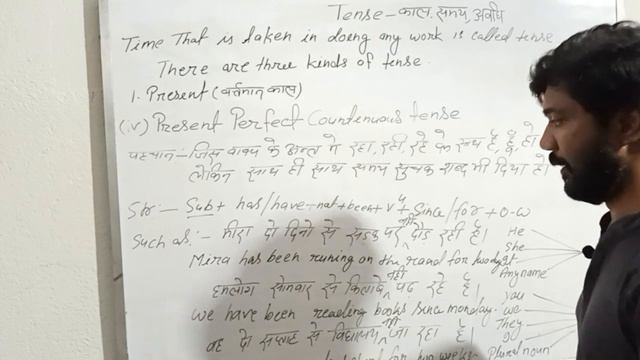 Tense - काल, समय, अवधि
Time That is taken in doing any work is called tense
There are three kinds of tense.
1. Present (वर्तमान काल)
(iv) Present Perfect Countenuous tense
पहचान:- जिस वाक्य के अन्त में रहा, रही, रहे के साथ है, हैं, हो
लेकिन साथ ही साथ समय सुचक शब्द भी दिया हो
Str:- Sub + has/have-not+been+v4+Since/for+o-w
Such as:- मीरा दो दिनो से सड़क पर दौड़ रही है।
Mira has been runing on the road for two days
हमलोग सोमवार से किताबे नहीं पढ़ रहे हैं
we have been reading books since monday.
वह दो सप्ताह से विद्यालय नहीं जा रहा है।
for two weeks
He
She
It
Any name
you
we
they
Plural noun